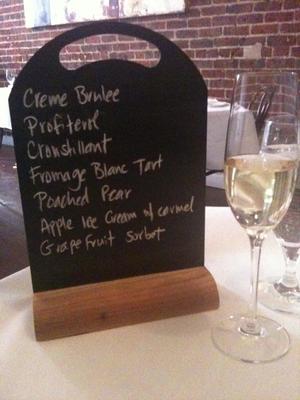 Creme Brulee
Profiterol
Croustillant
Fromage Blanc Tart
Poached Pear
Apple Ice Cream w/ carmel
Grapefruit Sorbet